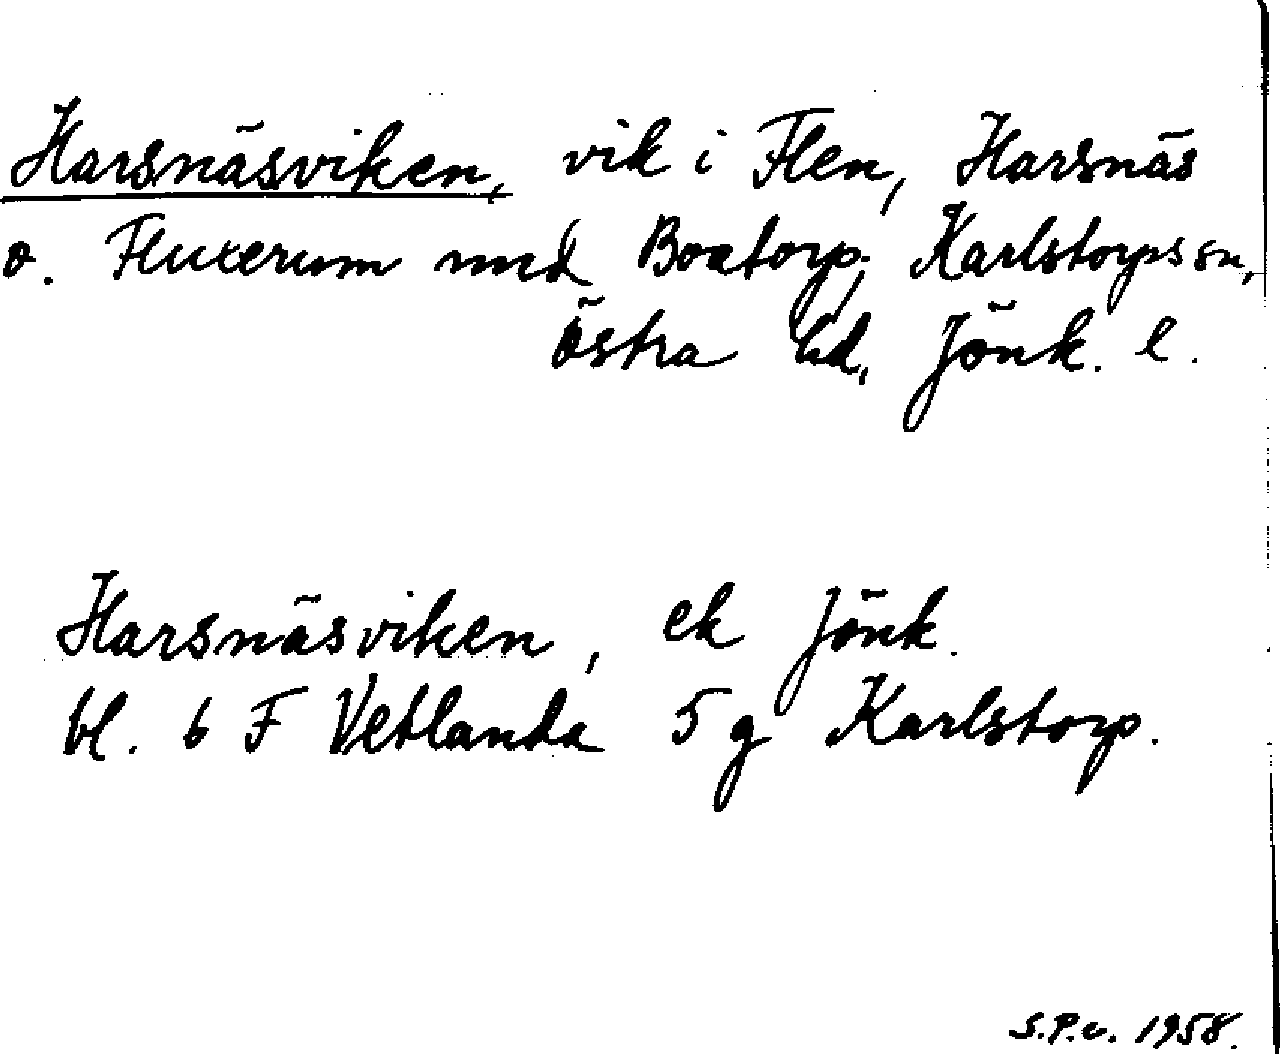 Harsnäsviken, vik i Flen, Harsnäs
o. Fluxerum med Boatorp, Karlstorps sn,
Östra hd, Jönk. l.
Harsnäsviken, ek Jönk.
bl. 6 F Vetlanda 5 g Karlstorp.
S.P.c. 1958.